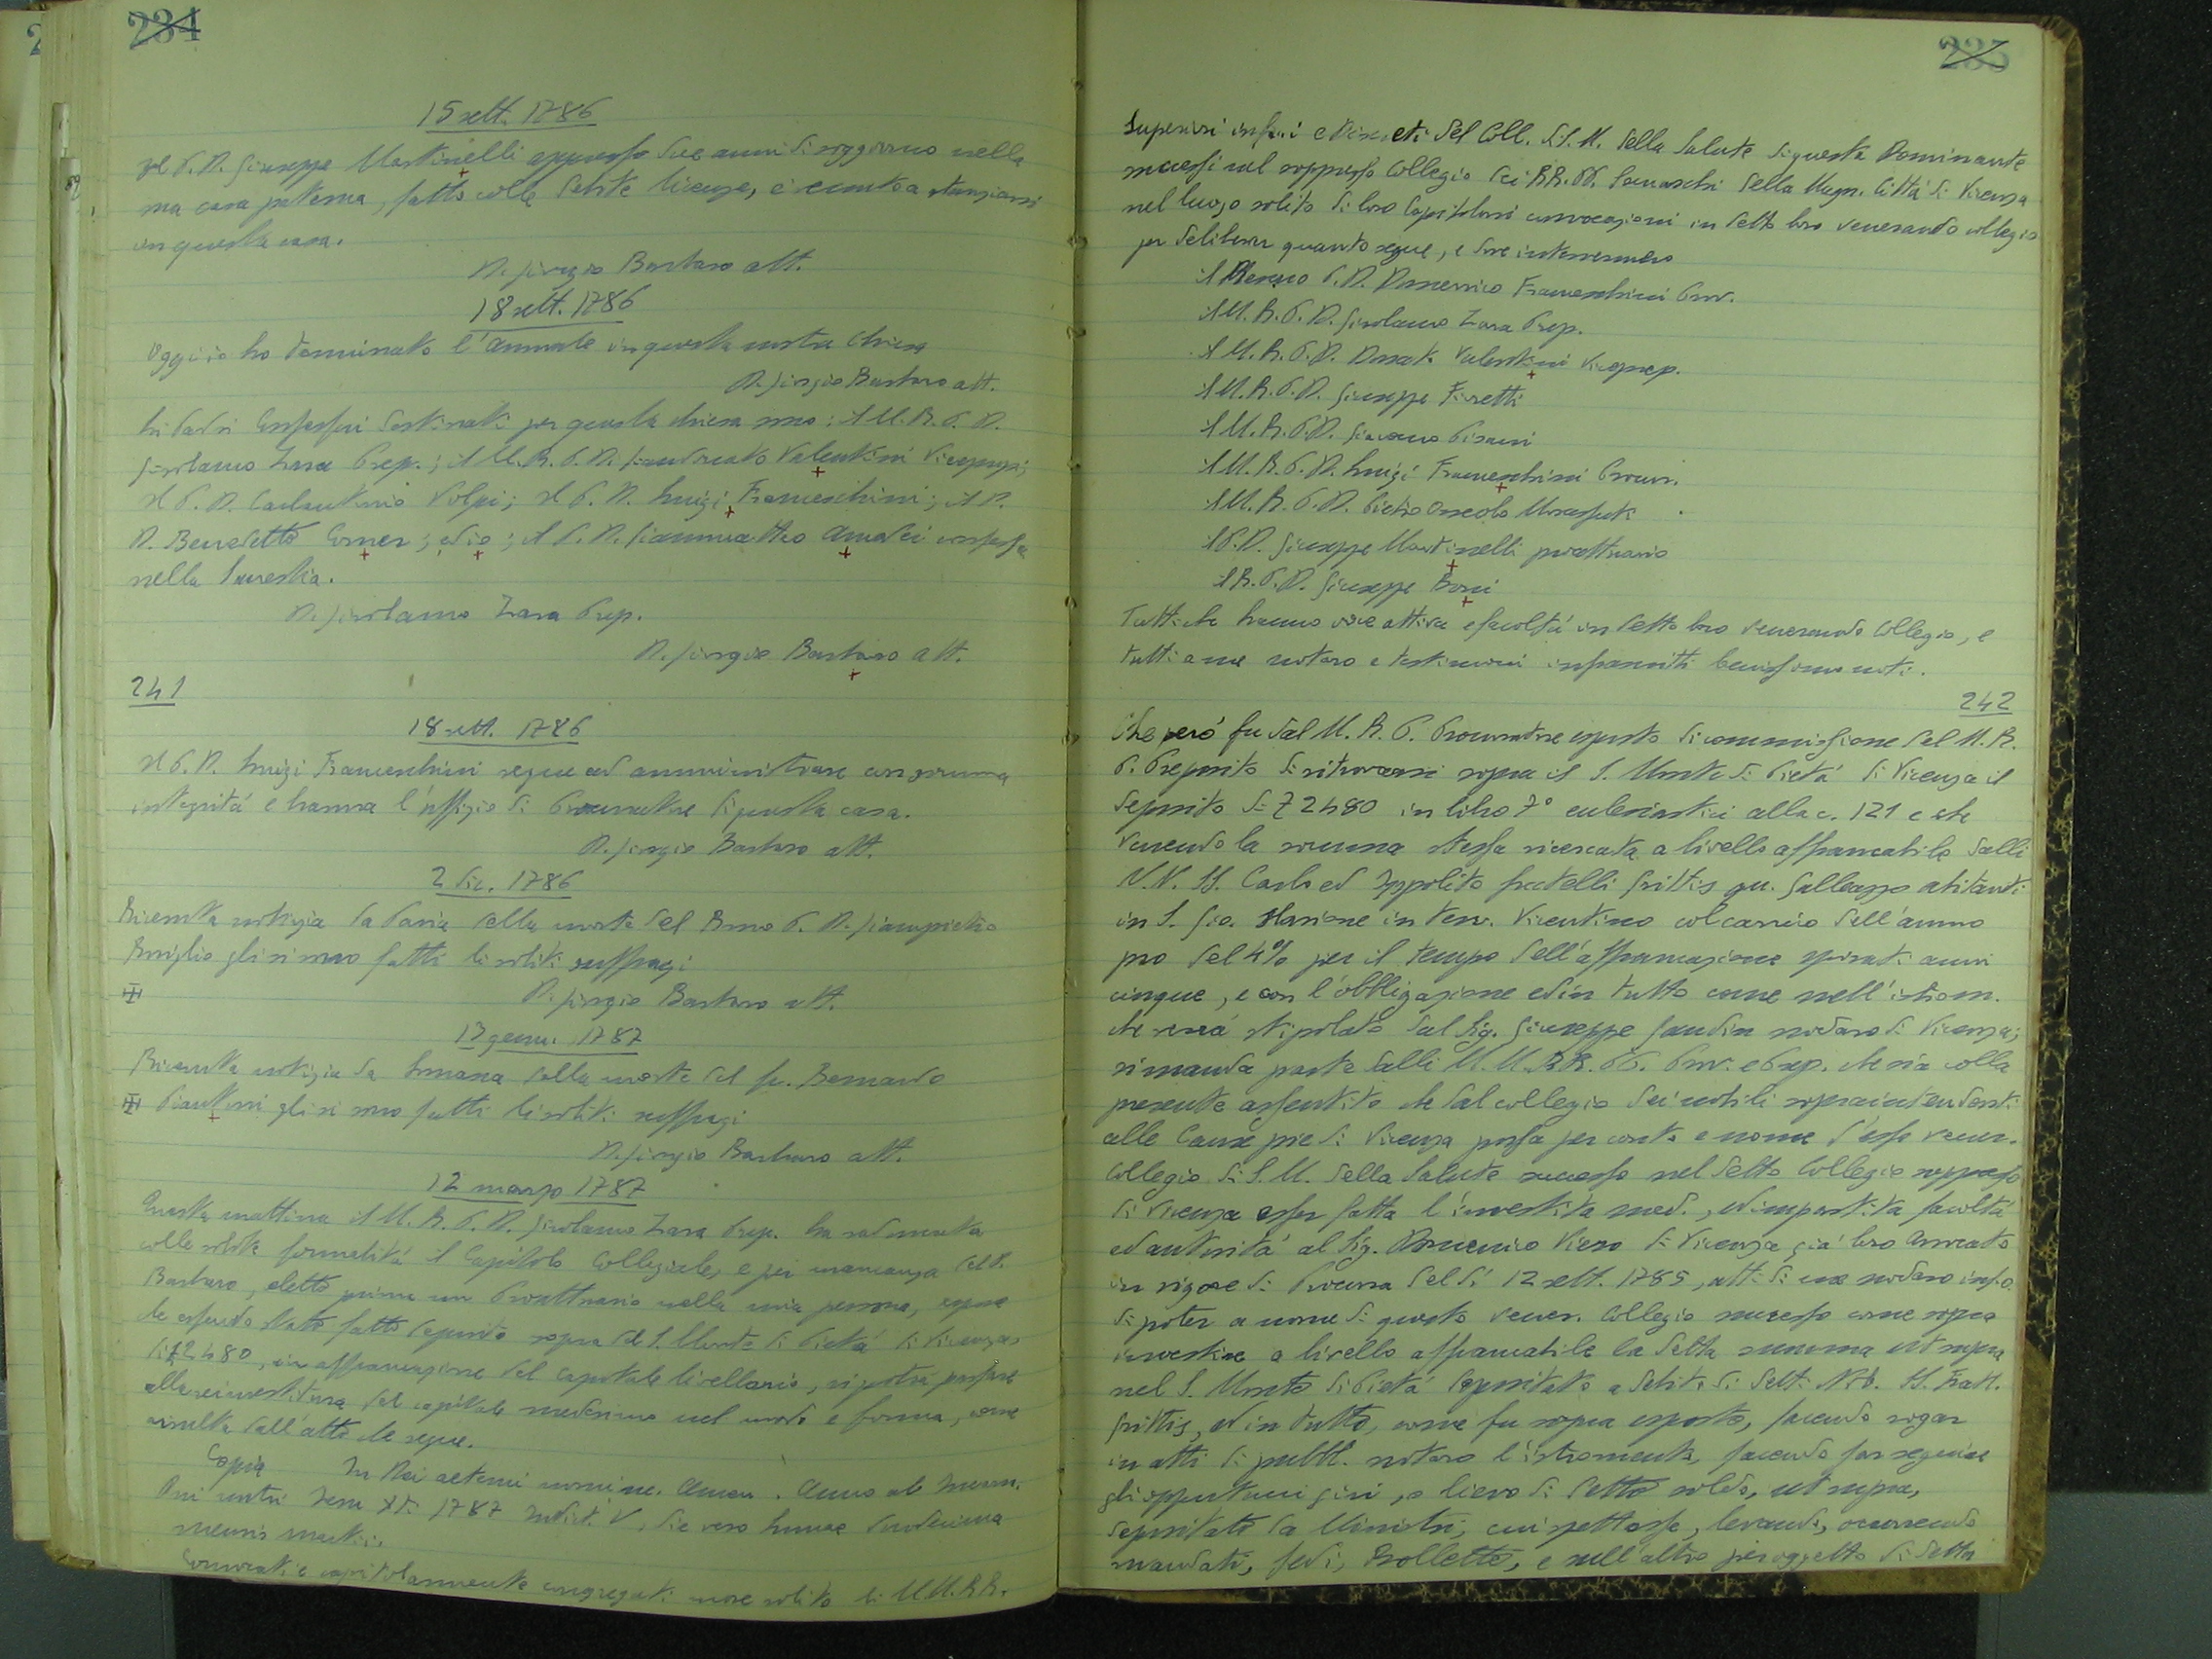 234
15 sett. 1786
Il P. D. Giuseppe Martinelli appresso due anni di soggiorno nella
sua casa paterna, fatto colle debite licenze, è venuto a stanziarsi
in questa casa.
D. Giorgio Barbaro att.
18 sett. 1786
Oggi io ho terminato l'annuale in questa nostra Chiesa
D. Giorgio Barbaro att.
Li Padri Confessori destinati per questa chiesa sono: il M. R. P. D.
Girolamo Zara Prep.; il M. R. P. D. Giandonato Valentini Viceprep.;
il P. D. Carlantonio Volpi; il P. D. Luigi Franceschini; il P.
D. Benedetto Corner; ed io; il P. D. Giammatteo Amadei confessa
nella Sacrestia.
D. Girolamo Zara Prep.
D. Giorgio Barbaro att.
241
18 sett. 1786
Il P. D. Luigi Franceschini segue ad amministrare con somma
integrità e brama l'uffizio di Procuratore di questa casa.
D. Giorgio Barbaro att.
2 dic. 1786
Ricevuta notizia da Pavia della morte del Rmo P. D. Giampietro
Roviglio gli si sono fatti li soliti suffragi
D. Giorgio Barbaro att.
13 genn. 1787
Ricevuta notizia da Somasca della morte del fr. Bernardo
Piantoni gli si sono fatti li soliti suffragi
D. Giorgio Barbaro att.
12 marzo 1787
Questa mattina il M. R. P. D. Girolamo Zara Prep. ha radunato
colle solite formalità il Capitolo Collegiale, e per mancanza del P.
Barbaro, eletto prima un Proattuario nella mia persona, espose
che essendo stato fatto deposito sopra del S. Monte di Pietà di Vicenza,
di Z 2480, in affrancazione del capitale livellario, si potrà passare
alla reinvestitura del capitale medesimo nel modo e forma, come
risulta dall'atto che segue.
Copia In Dei aeterni nomine. Amen. Anno ab Incarn.
Dni nostri Jesu Xti 1787 Indict. V, die vero Lunae duodecima
mensis martii.
Convocati e capitolarmente congregati more solito li MM. RR.
235
Superiori infras. e Discreti del Coll. di S. M. della Salute di questa Dominante
successi nel soppresso Collegio dei RR. PP. Somaschi della Magn. Città di Vicenza
nel luogo solito di loro Capitolari convocazioni in detto loro venerando collegio
per deliberar quanto segue, e dove intervennero
il Rev.mo P. D. Domenico Franceschini Prov.
il M. R. P. D. Girolamo Zara Prep.
il M. R. P. D. Donato Valentini Viceprep.
il M. R. P. D. Giuseppe Fioretti
il M. R. P. D. Giacomo Pisani
il M. R. P. D. Luigi Franceschini Procur.
il M. R. P. D. Pietro Orseolo
il P. D. Giuseppe Martinelli proattuario
il R. P. D. Giuseppe Boni
Tutti che hanno voce attiva e facoltà in detto loro venerando Collegio, e
tutti a me notaro e testimoni infrascritti benissimo noti.
242
Che però fu dal M. R. P. Procuratore esposto di commissione del M. R.
P. Preposito di ritrovarsi sopra il S. Monte di Pietà di Vicenza il
deposito di Z 2480 in libro 7° eclesiastici alla c. 121 e che
venendo la somma stessa ricercata a livello affrancabile dalli
N. N. H. Carlo ed Ippolito fratelli Grittis qu. Galleazzo abitanti
in S. Gio. Ilarione in terr. Vicentino col carrico dell'anno
pro del 4% per il tempo dell'affrancazione spirati anni
cinque, e con l'obbligazione ed in tutto come nell'istrom.
che verrà stipolato dal Sig. Giuseppe Gaudin nodaro di Vicenza;
si manda parte dalli M. M. RR. PP. Prov. e Prep. che sia colla
presente assentito che dal collegio dei nobili sopraintendenti
alle Cause pie di Vicenza possa per conto e nome d'esso vener.
Collegio di S. M. della Salute successo nel detto Collegio soppresso
di Vicenza esser fatta l'investita med., ed impartita facoltà
ed autorità al Sig. Domenico Viero di Vicenza già loro
in vigore di Procura del dì 12 sett. 1785, atti di me nodaro infr.o
di poter a nome di questo vener. Collegio successo come sopra
investire a livello affrancabile la detta summa ut supra
nel S. Monte di Pietà depositato a debito di detti Nob. H. Frat.
Grittis, ed in tutto, come fu sopra esposto, facendo rogar
in atti di pubbl. notaro l'istromento, facendo far seguire
gli opportuni giri, o lievo di detto soldo, ut supra,
depositato da Ministri, cui spettasse, levando, occorrendo
mandati, fedi, Bollette, e nell'altro per oggetto di detta